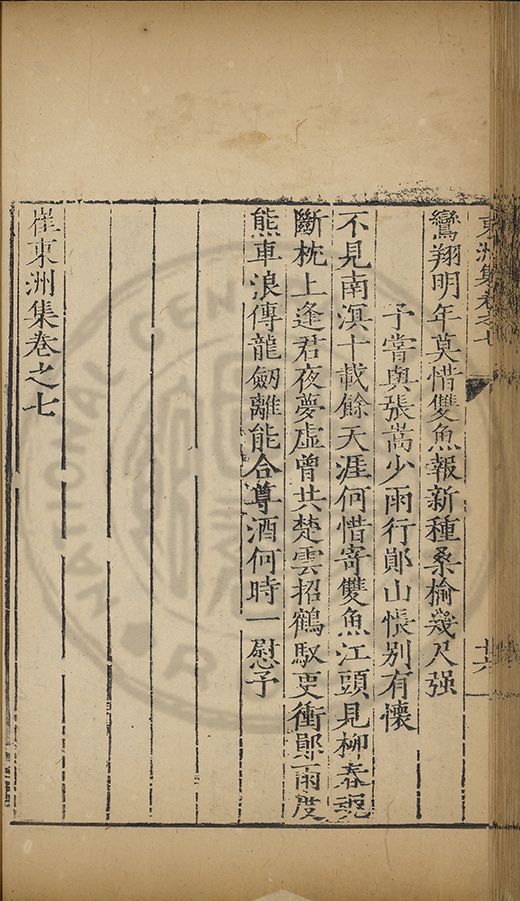 東洲集卷之七
鸞翔明年莫惜雙魚報新種桑榆幾尺强
予嘗與張嵩少雨行鄖山悵别有懷
不見南溟十載餘天涯何惜寄雙魚江頭見柳春魂
斷枕上逢君夜夢虛曾共楚雲招鶴馭更衝鄖雨度
熊車浪傳龍劒離能合尊酒何時一慰予
崔東洲集卷之七